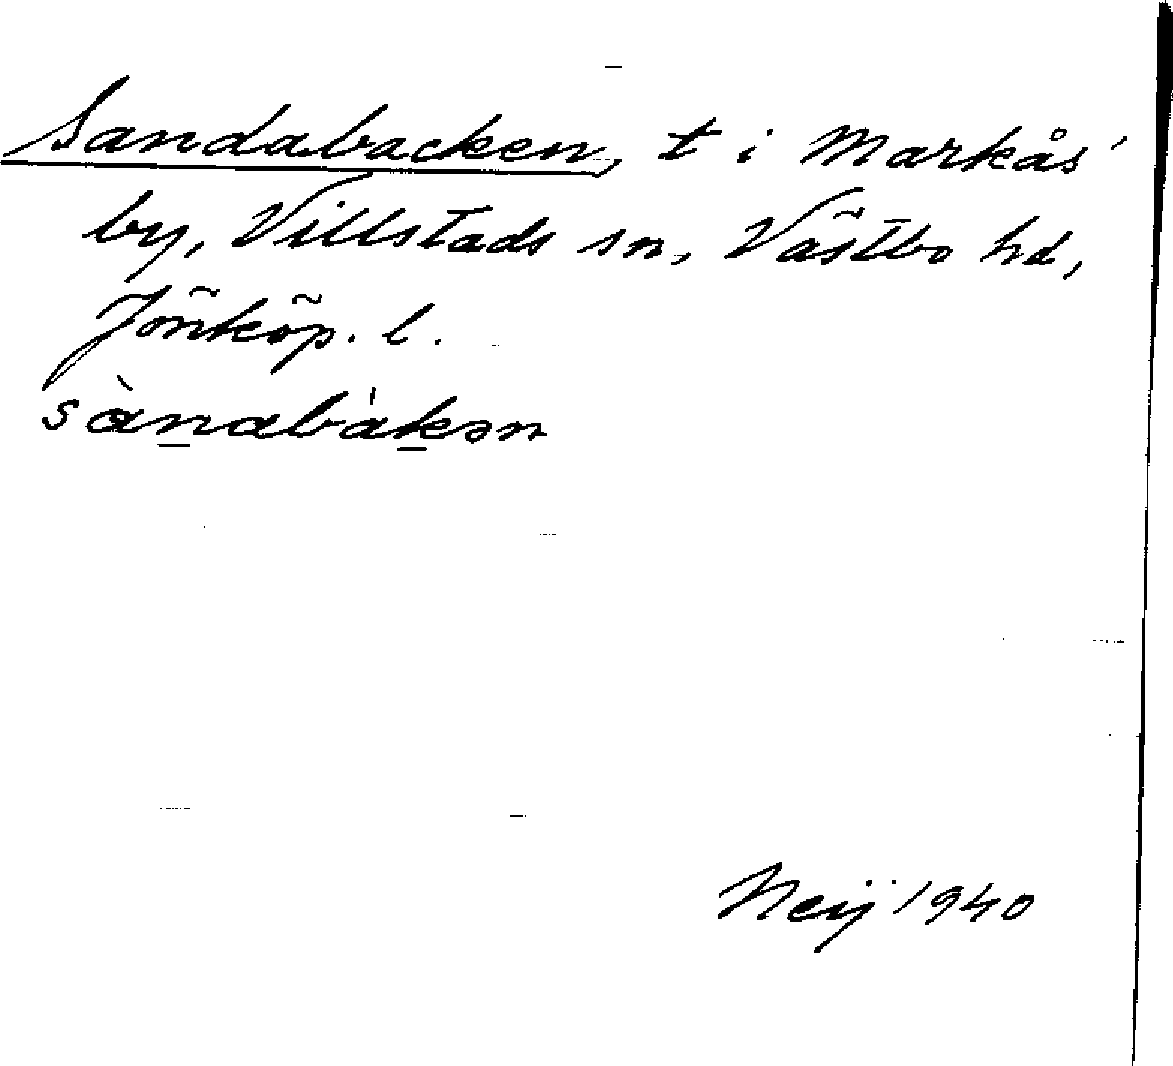 Sandabacken, t i Markås
by, Villstads sn, Västbo hd,
Jönköp. l.
sànabákən
Neij 1940